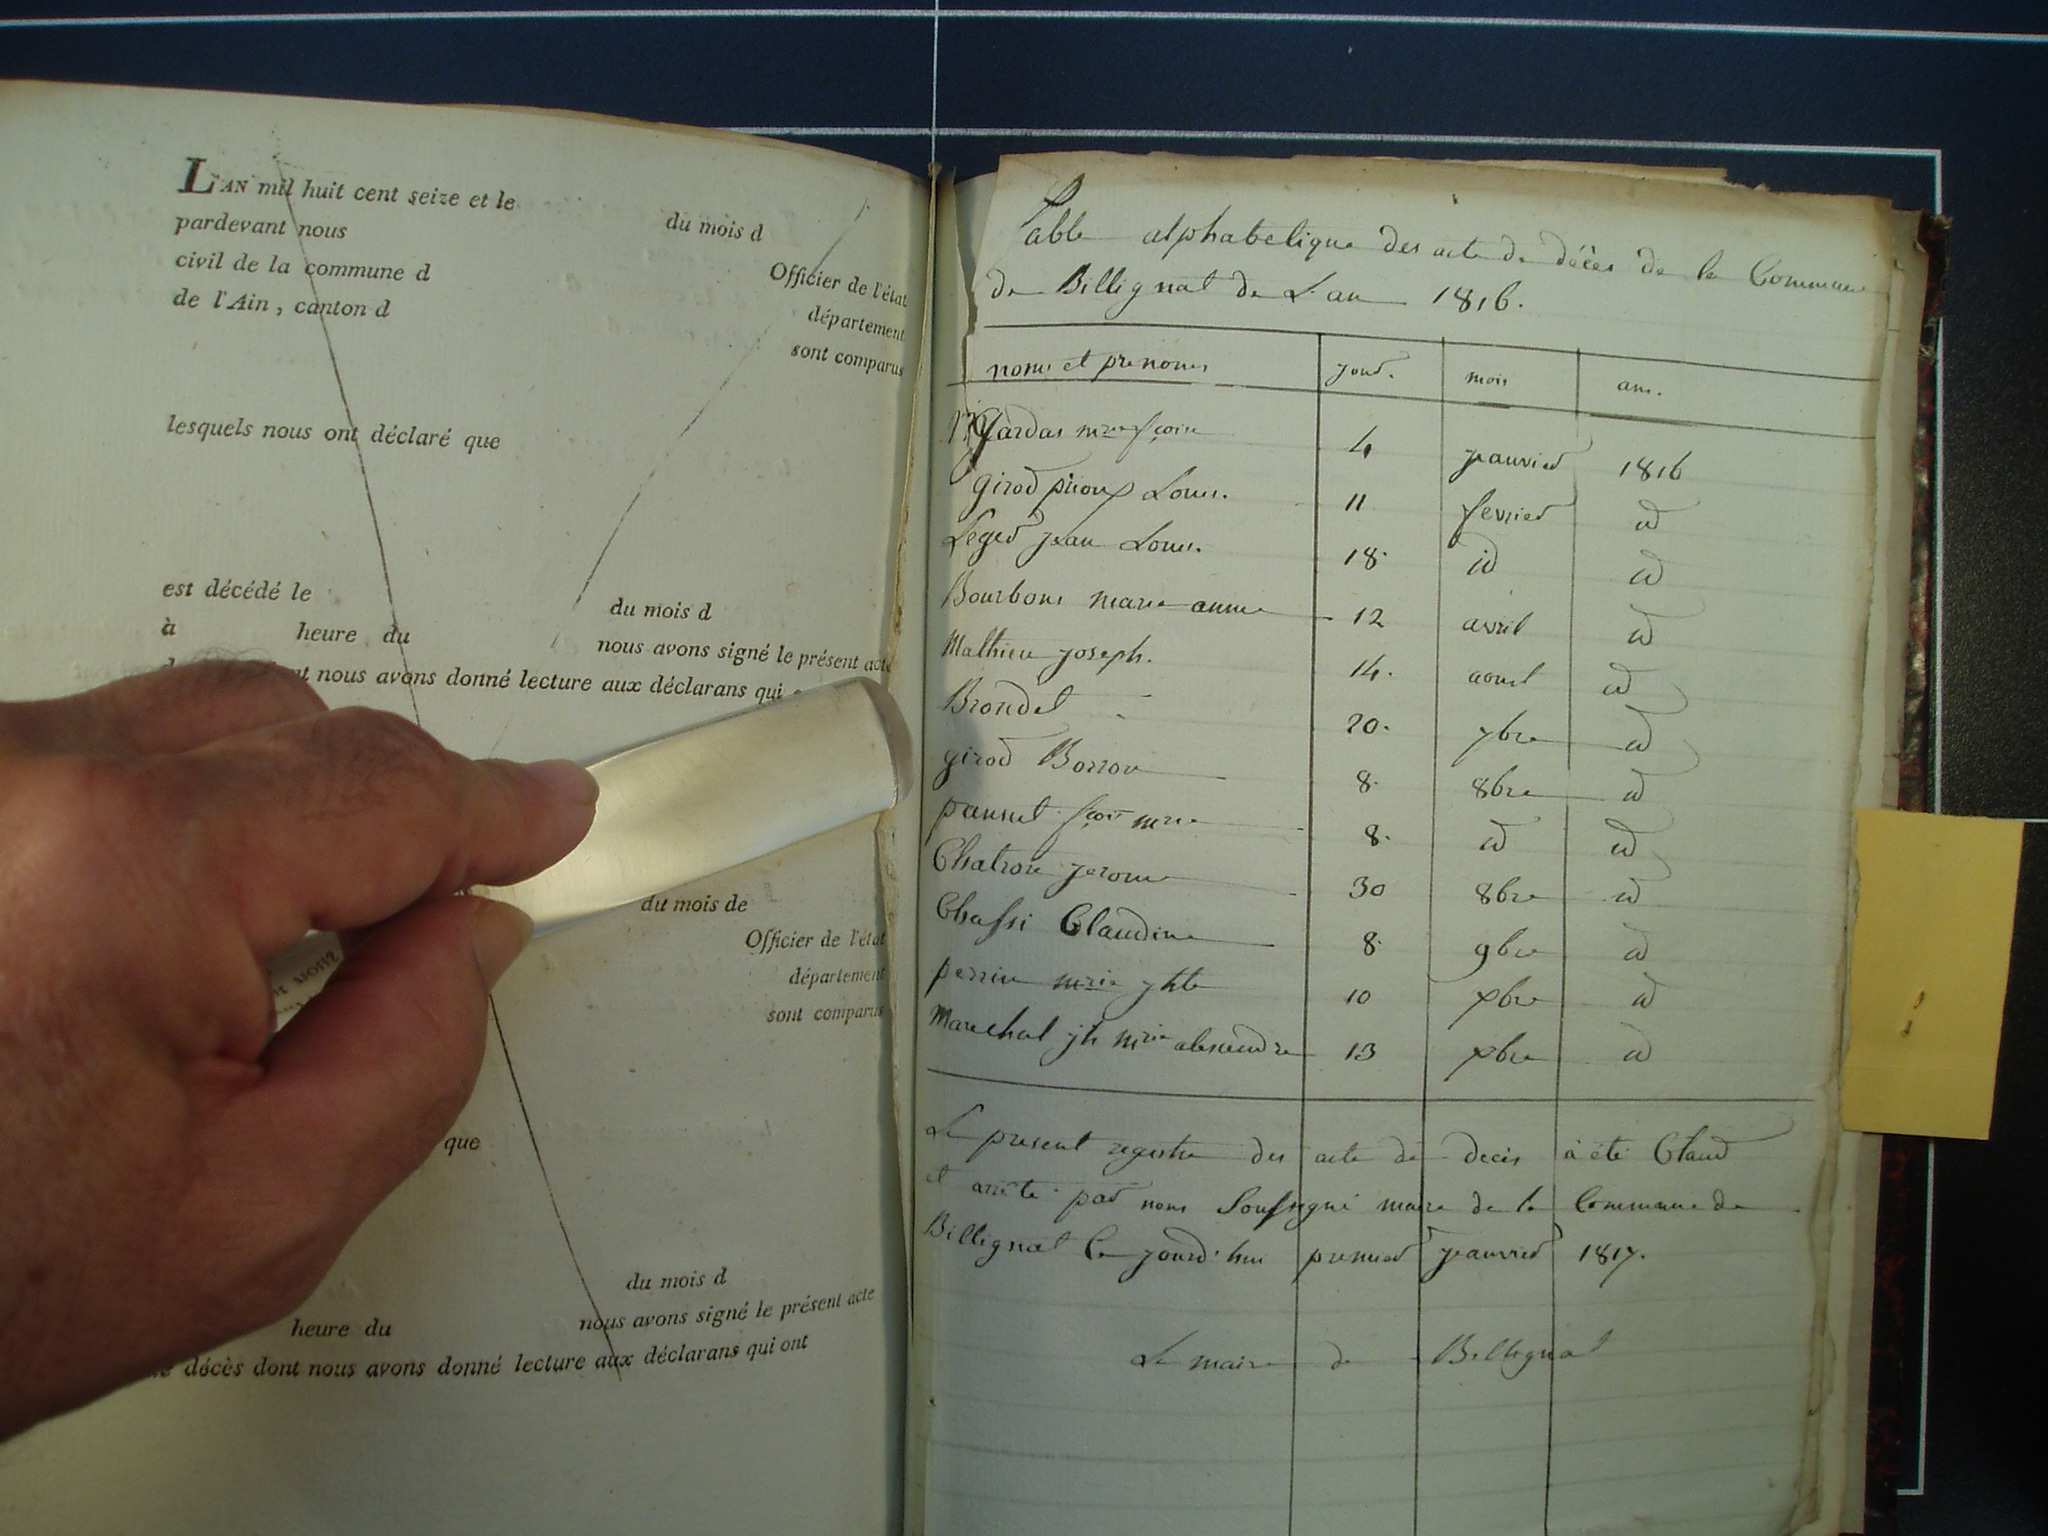 L'AN mil huit cent seize et le du mois d
pardevant nous Officier de l'état
civil de la commune d département
de l'Ain, canton d sont comparus
lesquels nous ont déclaré que
est décédé le du mois d
à heure du nous avons signé le présent acte
nous avons donné lecture aux déclarans qui
du mois de
Officier de l'état
département
sont comparus
que
du mois d
heure du nous avons signé le présent acte
décès dont nous avons donné lecture aux déclarans qui ont
Table alphabetique des acte de décès de la Commune
de Billignat de L'an 1816.
noms et prenoms jour. mois ans.
Gardas mrie fçoise 4 jeanvier 1816
girod Louis. 11 fevrier id
Leger jean Louis. 18. id id
Bourbons marie anne 12 avril id
Mathieu joseph. 14. aout id
Brondel 20. 7bre id
girod Borron 8. 8bre id
pannet fçois mrie 8. id id
Chatron jerome 30 8bre id
Chassi Claudine 8. 9bre id
perrin mrie jhte 10 xbre id
Marechal jh mrie alexendre 13 xbre id
Le present registre des acte de decès à été Claud
et arrêté par nous Soussigné maire de la Commune de
Billignat Ce jourd'hui premier jeanvier 1817.
Le maire de Billignat